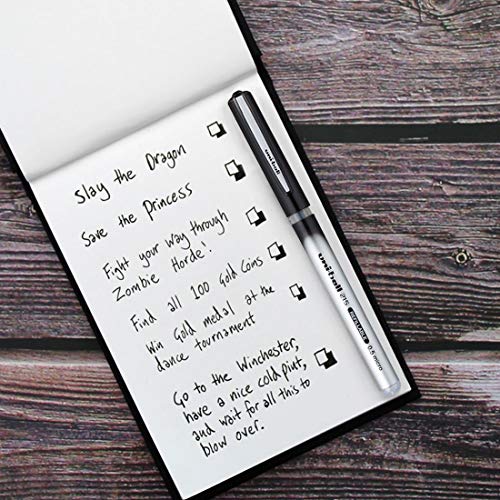 Slay the Dragon
Save the Princess
Fight your way through
Zombie Horde!
Find all 100 Gold Coins
Win Gold medal at the
dance tournament
Go to the Winchester,
have a nice cold pint,
and wait for all this to
blow over.
uni-ball
uni-ball 215 0.5 micro